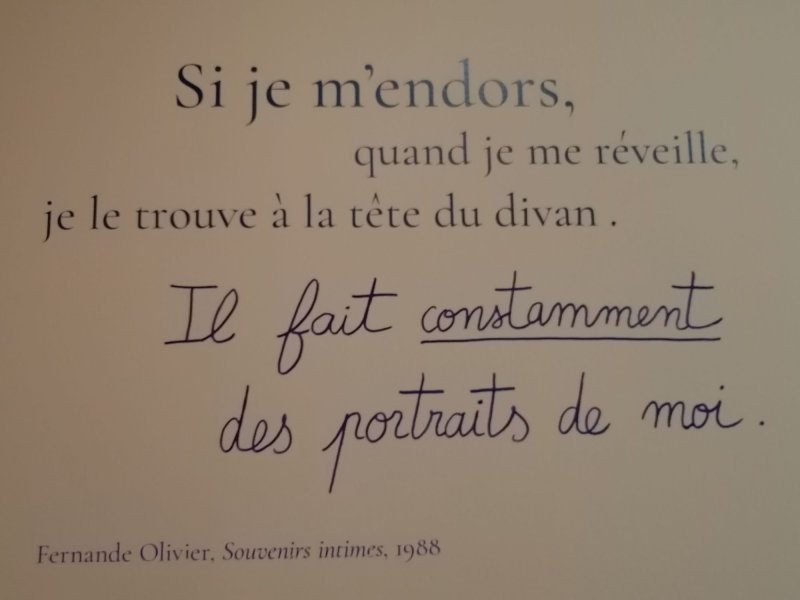 Si je m'endors,
quand je me réveille,
je le trouve à la tête du divan .
Il fait constamment
des portraits de moi .
Fernande Olivier, Souvenirs intimes, 1988